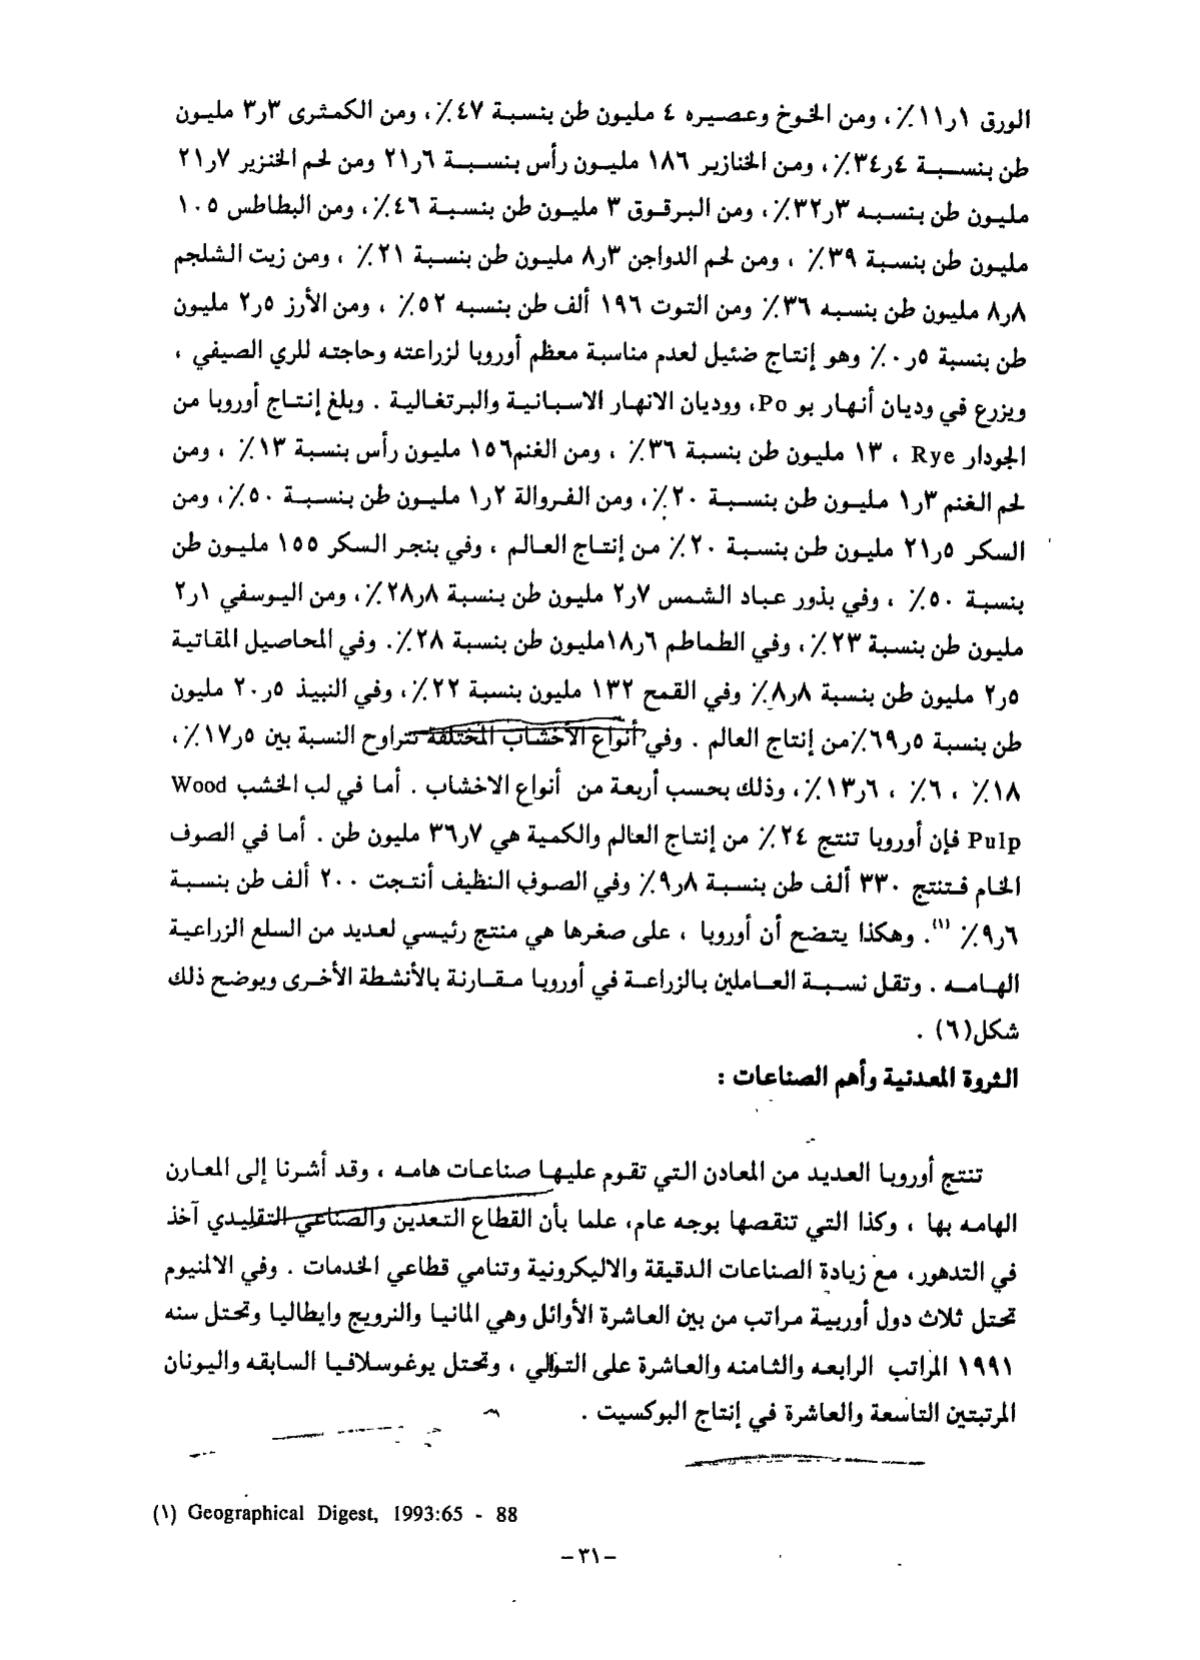 الورق ١ر١١٪، ومن الخوخ وعصيره ٤ مليون طن بنسبة ٤٧٪، ومن الكمثرى ٣ر٣ مليون
طن بنسبة ٤ر٣٤٪، ومن الخنازير ١٨٦ مليون رأس بنسبة ٦ر٢١ ومن لحم الخنزير ٧ر٢١
مليون طن بنسبه ٣ر٣٢٪، ومن البرقوق ٣ مليون طن بنسبة ٤٦٪، ومن البطاطس ١٠٥
مليون طن بنسبة ٣٩٪ ، ومن لحم الدواجن ٣ر٨ مليون طن بنسبة ٢١٪ ، ومن زيت الشلجم
٨ر٨ مليون طن بنسبه ٣٦٪ ومن التوت ١٩٦ ألف طن بنسبه ٥٢٪ ، ومن الأرز ٥ر٢ مليون
طن بنسبة ٥ر٠٪ وهو إنتاج ضئيل لعدم مناسبة معظم أوروبا لزراعته وحاجته للري الصيفي ،
ويزرع في وديان أنهار بو Po، ووديان الانهار الاسبانية والبرتغالية . وبلغ إنتاج أوروبا من
الجودار Rye ، ١٣ مليون طن بنسبة ٣٦٪ ، ومن الغنم١٥٦ مليون رأس بنسبة ١٣٪ ، ومن
لحم الغنم ٣ر١ مليون طن بنسبة ٢٠٪، ومن الفروالة ٢ر١ مليون طن بنسبة ٥٠٪، ومن
السكر ٥ر٢١ مليون طن بنسبة ٢٠٪ من إنتاج العالم ، وفي بنجر السكر ١٥٥ مليون طن
بنسبة ٥٠٪ ، وفي بذور عباد الشمس ٧ر٢ مليون طن بنسبة ٨ر٢٨٪، ومن اليوسفي ١ر٢
مليون طن بنسبة ٢٣٪، وفي الطماطم ٦ر١٨مليون طن بنسبة ٢٨٪. وفي المحاصيل المقاتية
٥ر٢ مليون طن بنسبة ٨ر٨٪ وفي القمح ١٣٢ مليون بنسبة ٢٢٪، وفي النبيذ ٥ر٢٠ مليون
طن بنسبة ٥ر٦٩٪من إنتاج العالم . وفي أنواع الأخشاب المختلفة تتراوح النسبة بين ٥ر١٧٪،
١٨٪ ، ٦٪ ، ٦ر١٣٪، وذلك بحسب أربعة من أنواع الاخشاب . أما في لب الخشب Wood
Pulp فإن أوروبا تنتج ٢٤٪ من إنتاج العالم والكمية هي ٧ر٣٦ مليون طن . أما في الصوف
الخام فتنتج ٣٣٠ ألف طن بنسبة ٨ر٩٪ وفي الصوف النظيف أنتجت ٢٠٠ ألف طن بنسبة
٦ر٩٪ (١). وهكذا يتضح أن أوروبا ، على صغرها هي منتج رئيسي لعديد من السلع الزراعية
الهامه . وتقل نسبة العاملين بالزراعة في أوروبا مقارنة بالأنشطة الأخرى ويوضح ذلك
شكل(٦) .
الثروة المعدنية وأهم الصناعات :
تنتج أوروبا العديد من المعادن التي تقوم عليها صناعات هامه ، وقد أشرنا إلى المعارن
الهامه بها ، وكذا التي تنقصها بوجه عام، علما بأن القطاع التعدين والصناعي التقليدي آخذ
في التدهور، مع زيادة الصناعات الدقيقة والاليكرونية وتنامي قطاعي الخدمات . وفي الالمنيوم
تحتل ثلاث دول أوربية مراتب من بين العاشرة الأوائل وهي المانيا والنرويج وايطاليا وتحتل سنه
١٩٩١ المراتب الرابعه والثامنه والعاشرة على التوالي ، وتحتل يوغوسلافيا السابقه واليونان
المرتبتين التاسعة والعاشرة في إنتاج البوكسيت .
(١) Geographical Digest, 1993:65 - 88
– ٣١ –